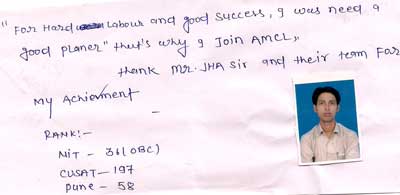 "For Hard Labour and good success, I was need a
good planer" that's why I Join AMCL,
thank Mr. JHA sir and their team For
My Achievment
-
RANK:-
NIT - 361(OBC)
CUSAT - 197
Pune - 58